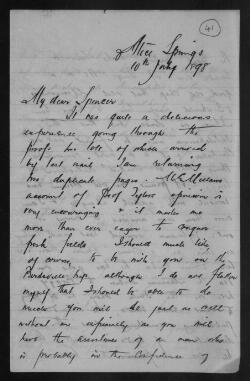 41
Alice Springs
10th July 1898
My dear Spencer
It was quite a delicious
experience going through the
proofs two lots of which arrived
by last mail I am returning
two duplicate pages.
account of Prof Tylors opinions is
very encouraging & it makes me
more than ever eager to
fresh fields I should much like
of course to be with you on the
Birdsville trip although I do not flatter
myself that I should be able to do
You will do just as well
without me as you will
have the assistance of a man who
is probably in the confidence of